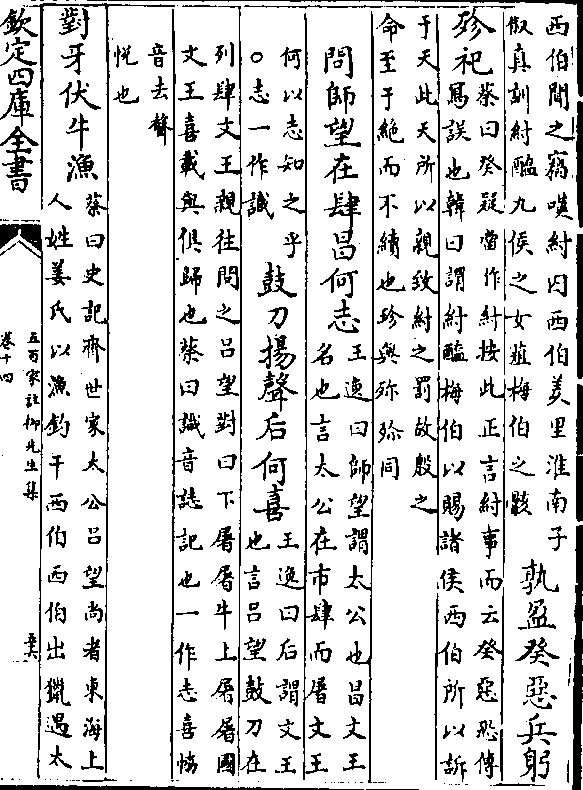 西伯聞之竊嘆紂囚西伯羑里淮南子
俶真訓紂醢九侯之女葅梅伯之骸
孰盈癸惡兵躬
殄祀
蔡曰癸疑當作紂按此正言紂事而云癸惡恐傳
寫誤也韓曰謂紂醢梅伯以賜諸侯西伯所以訴
于天此天所以親致紂之罰故殷之
命至于絶而不續也殄與同
問師望在肆昌何志
王逸曰師望謂太公也昌文王
名也言太公在市肆而屠文王
何以志知之乎
○志一作識
鼓刀揚聲后何喜
王逸曰后謂文王
也言吕望鼓刀在
列肆文王親往問之吕望對曰下屠屠牛上屠屠國
文王喜載與俱歸也蔡曰識音誌記也一作志喜協
音去聲
悦也
對牙伏牛漁
蔡曰史記齊世家太公吕望尚者東海上
人姓姜氏以漁釣干西伯西伯出獵遇太
欽定四庫全書
五百家註柳先生集
卷十四